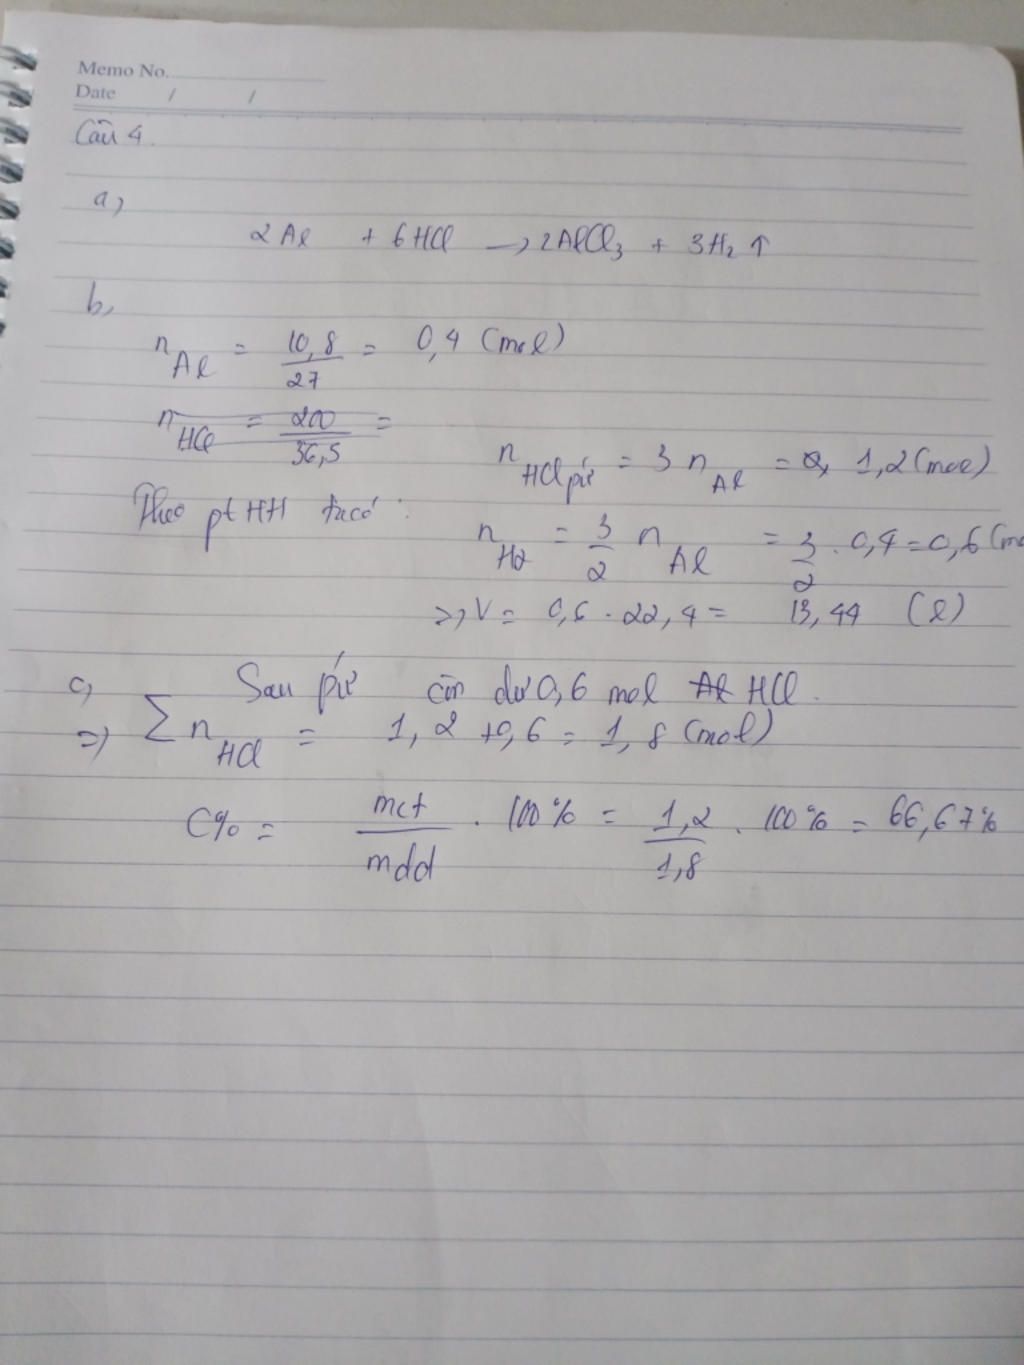 Memo No.
Date / /
Câu 4.
a,
2Al + 6HCl → 2AlCl₃ + 3H₂ ↑
b,
n Al = 10,8 / 27 = 0,4 (mol)
n HCl = 200 / 36,5 =
n HCl pứ = 3 n Al = 1,2 (mol)
Theo pt HH ta có :
n H2 = 3/2 n Al = 3/2 . 0,4 = 0,6 (mo
=> V = 0,6 . 22,4 = 13,44 (l)
c, Sau pứ còn dư 0,6 mol HCl.
=> ∑ n HCl = 1,2 + 0,6 = 1,8 (mol)
C% = mct / mdd . 100% = 1,2 / 1,8 . 100% = 66,67%